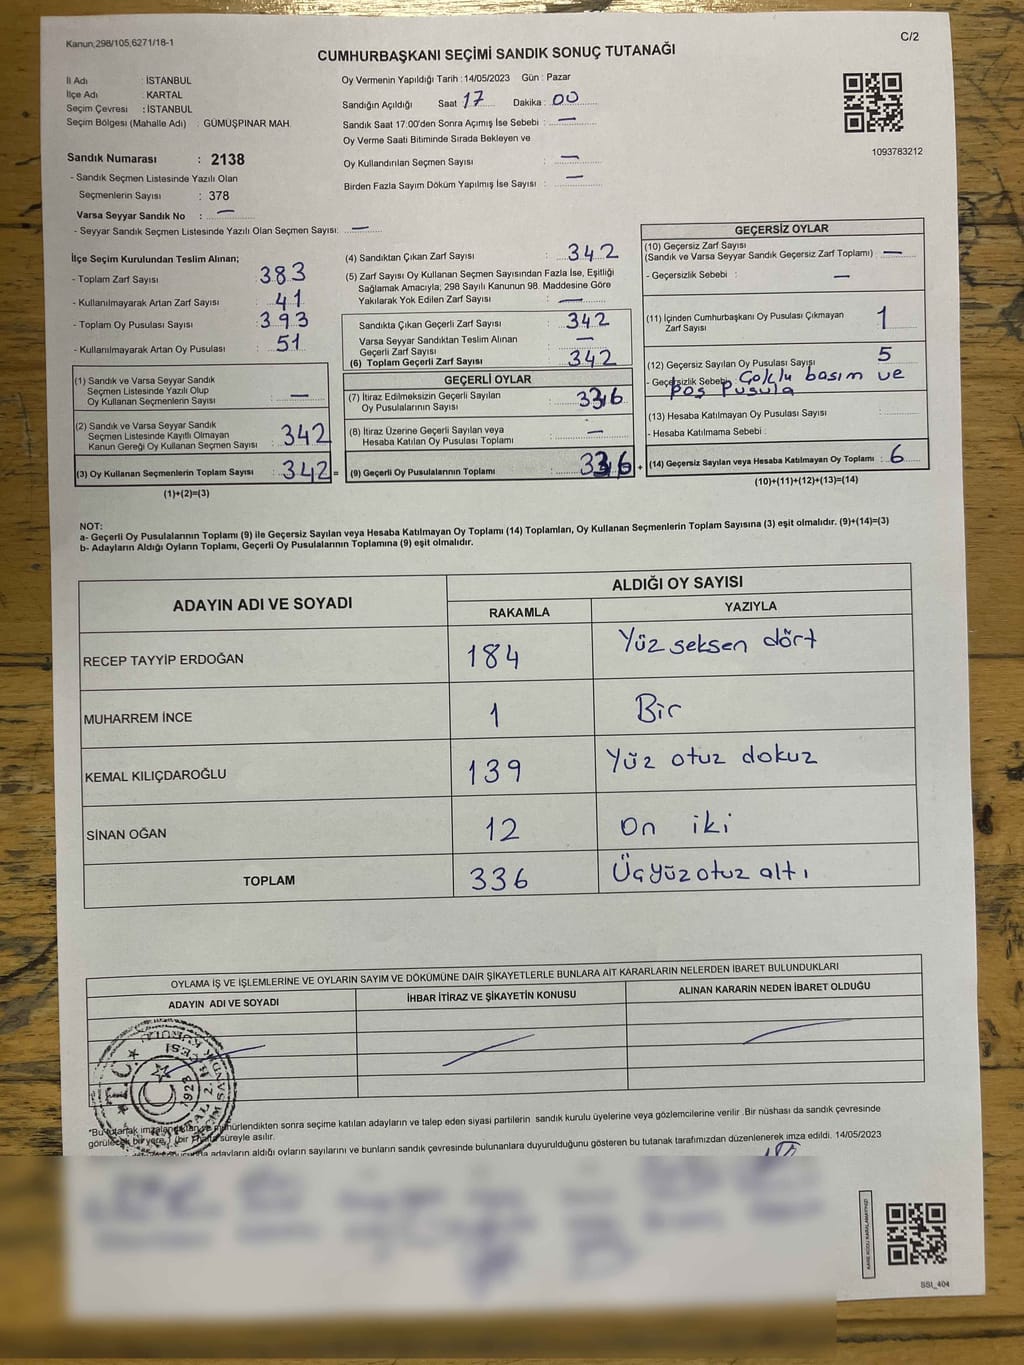 Kanun;298/105;6271/18-1
C/2
CUMHURBAŞKANI SEÇİMİ SANDIK SONUÇ TUTANAĞI
İl Adı : İSTANBUL
İlçe Adı : KARTAL
Seçim Çevresi : İSTANBUL
Seçim Bölgesi (Mahalle Adı) : GÜMÜŞPINAR MAH.
Sandık Numarası : 2138
- Sandık Seçmen Listesinde Yazılı Olan
Seçmenlerin Sayısı : 378
Varsa Seyyar Sandık No : —
- Seyyar Sandık Seçmen Listesinde Yazılı Olan Seçmen Sayısı: —
Oy Vermenin Yapıldığı Tarih : 14/05/2023 Gün : Pazar
Sandığın Açıldığı Saat 17 Dakika : 00
Sandık Saat 17:00'den Sonra Açımış İse Sebebi : —
Oy Verme Saati Bitiminde Sırada Bekleyen ve
Oy Kullandırılan Seçmen Sayısı : —
Birden Fazla Sayım Döküm Yapılmış İse Sayısı : —
1093783212
İlçe Seçim Kurulundan Teslim Alınan;
- Toplam Zarf Sayısı : 383
- Kullanılmayarak Artan Zarf Sayısı : 41
- Toplam Oy Pusulası Sayısı : 393
- Kullanılmayarak Artan Oy Pusulası : 51
(1) Sandık ve Varsa Seyyar Sandık
Seçmen Listesinde Yazılı Olup
Oy Kullanan Seçmenlerin Sayısı : —
(2) Sandık ve Varsa Seyyar Sandık
Seçmen Listesinde Kayıtlı Olmayan
Kanun Gereği Oy Kullanan Seçmen Sayısı : 342
(3) Oy Kullanan Seçmenlerin Toplam Sayısı : 342 =
(1)+(2)=(3)
(4) Sandıktan Çıkan Zarf Sayısı : 342
(5) Zarf Sayısı Oy Kullanan Seçmen Sayısından Fazla İse, Eşitliği
Sağlamak Amacıyla; 298 Sayılı Kanunun 98. Maddesine Göre
Yakılarak Yok Edilen Zarf Sayısı : —
Sandıkta Çıkan Geçerli Zarf Sayısı : 342
Varsa Seyyar Sandıktan Teslim Alınan
Geçerli Zarf Sayısı : —
(6) Toplam Geçerli Zarf Sayısı : 342
GEÇERLİ OYLAR
(7) İtiraz Edilmeksizin Geçerli Sayılan
Oy Pusulalarının Sayısı : 336
(8) İtiraz Üzerine Geçerli Sayılan veya
Hesaba Katılan Oy Pusulası Toplamı : —
(9) Geçerli Oy Pusulalarının Toplamı : 336 +
GEÇERSİZ OYLAR
(10) Geçersiz Zarf Sayısı
(Sandık ve Varsa Seyyar Sandık Geçersiz Zarf Toplamı) : —
- Geçersizlik Sebebi : —
(11) İçinden Cumhurbaşkanı Oy Pusulası Çıkmayan
Zarf Sayısı : 1
(12) Geçersiz Sayılan Oy Pusulası Sayısı : 5
- Geçersizlik Sebebi : Çoklu basım ve
boş pusula
(13) Hesaba Katılmayan Oy Pusulası Sayısı :
- Hesaba Katılmama Sebebi :
(14) Geçersiz Sayılan veya Hesaba Katılmayan Oy Toplamı : 6
(10)+(11)+(12)+(13)=(14)
NOT:
a- Geçerli Oy Pusulalarının Toplamı (9) ile Geçersiz Sayılan veya Hesaba Katılmayan Oy Toplamı (14) Toplamları, Oy Kullanan Seçmenlerin Toplam Sayısına (3) eşit olmalıdır. (9)+(14)=(3)
b- Adayların Aldığı Oyların Toplamı, Geçerli Oy Pusulalarının Toplamına (9) eşit olmalıdır.
ADAYIN ADI VE SOYADI
ALDIĞI OY SAYISI
RAKAMLA YAZIYLA
RECEP TAYYİP ERDOĞAN 184 Yüz seksen dört
MUHARREM İNCE 1 Bir
KEMAL KILIÇDAROĞLU 139 Yüz otuz dokuz
SİNAN OĞAN 12 On iki
TOPLAM 336 Üçyüz otuz altı
OYLAMA İŞ VE İŞLEMLERİNE VE OYLARIN SAYIM VE DÖKÜMÜNE DAİR ŞİKAYETLERLE BUNLARA AİT KARARLARIN NELERDEN İBARET BULUNDUKLARI
ADAYIN ADI VE SOYADI İHBAR İTİRAZ VE ŞİKAYETİN KONUSU ALINAN KARARIN NEDEN İBARET OLDUĞU
T.C.
1923
*Bu tutanak imzalandıktan ve mühürlendikten sonra seçime katılan adayların ve talep eden siyasi partilerin sandık kurulu üyelerine veya gözlemcilerine verilir .Bir nüshası da sandık çevresinde
görülecek bir yere, (bir) hafta süreyle asılır.
adayların aldığı oyların sayılarını ve bunların sandık çevresinde bulunanlara duyurulduğunu gösteren bu tutanak tarafımızdan düzenlenerek imza edildi. 14/05/2023
KARE KODU KARALAMAYINIZ!
SSI_404